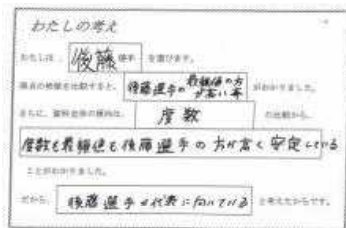 わたしの考え
わたしは、後藤選手を選びます。
両者の数値を比較すると、後藤選手の最頻値の方が高い事がわかりました。
さらに、資料全体の傾向は、度数の比較から、
度数も最頻値も後藤選手の方が高く安定している
ことがわかりました。
だから、後藤選手が代表に向いていると考えたからです。